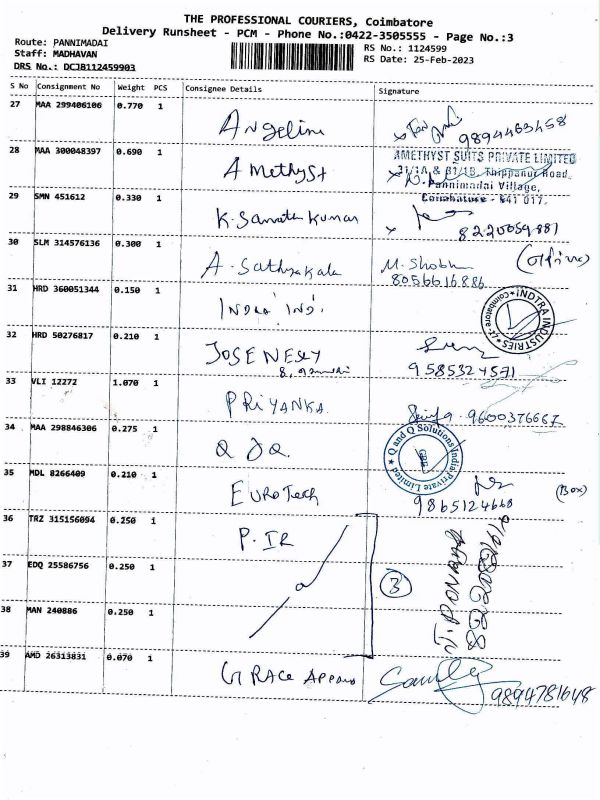 THE PROFESSIONAL COURIERS, Coimbatore
Delivery Runsheet - PCM - Phone No.:0422-3505555 - Page No.:3
Route: PANNIMADAI
Staff: MADHAVAN
DRS No.: DCJB112459903
RS No.: 1124599
RS Date: 25-Feb-2023
S No Consignment No Weight PCS Consignee Details Signature
27 MAA 299406106 0.770 1 Angelin 9894463458
28 MAA 300048397 0.690 1 Amethyst
AMETHYST SUITS PRIVATE LIMITED
31/1A & B1/1B, Thippanur Road,
Pannimadai Village,
Coimbatore - 641 017.
29 SMN 451612 0.330 1 K. Kumar 8220059881
30 SLM 314576136 0.300 1 A. Sathyakala M. Shobha
8056616886
31 HRD 360051344 0.150 1 INDRA IND.
INDTRA INDUSTRIES
32 HRD 50276817 0.210 1 JOSE NESLY
9585324571
33 VLI 12272 1.070 1 PRIYANKA 9600376667
34 MAA 298846306 0.275 1 Q & Q.
Q and Q Solutions India Private Limited
35 MDL 8266409 0.210 1 EUROTech 9865124668 (Box)
36 TRZ 315156094 0.250 1 P. IR
37 EDQ 25586756 0.250 1 3
38 MAN 240886 0.250 1
39 AMD 26313831 0.070 1 GRACE 9894781648